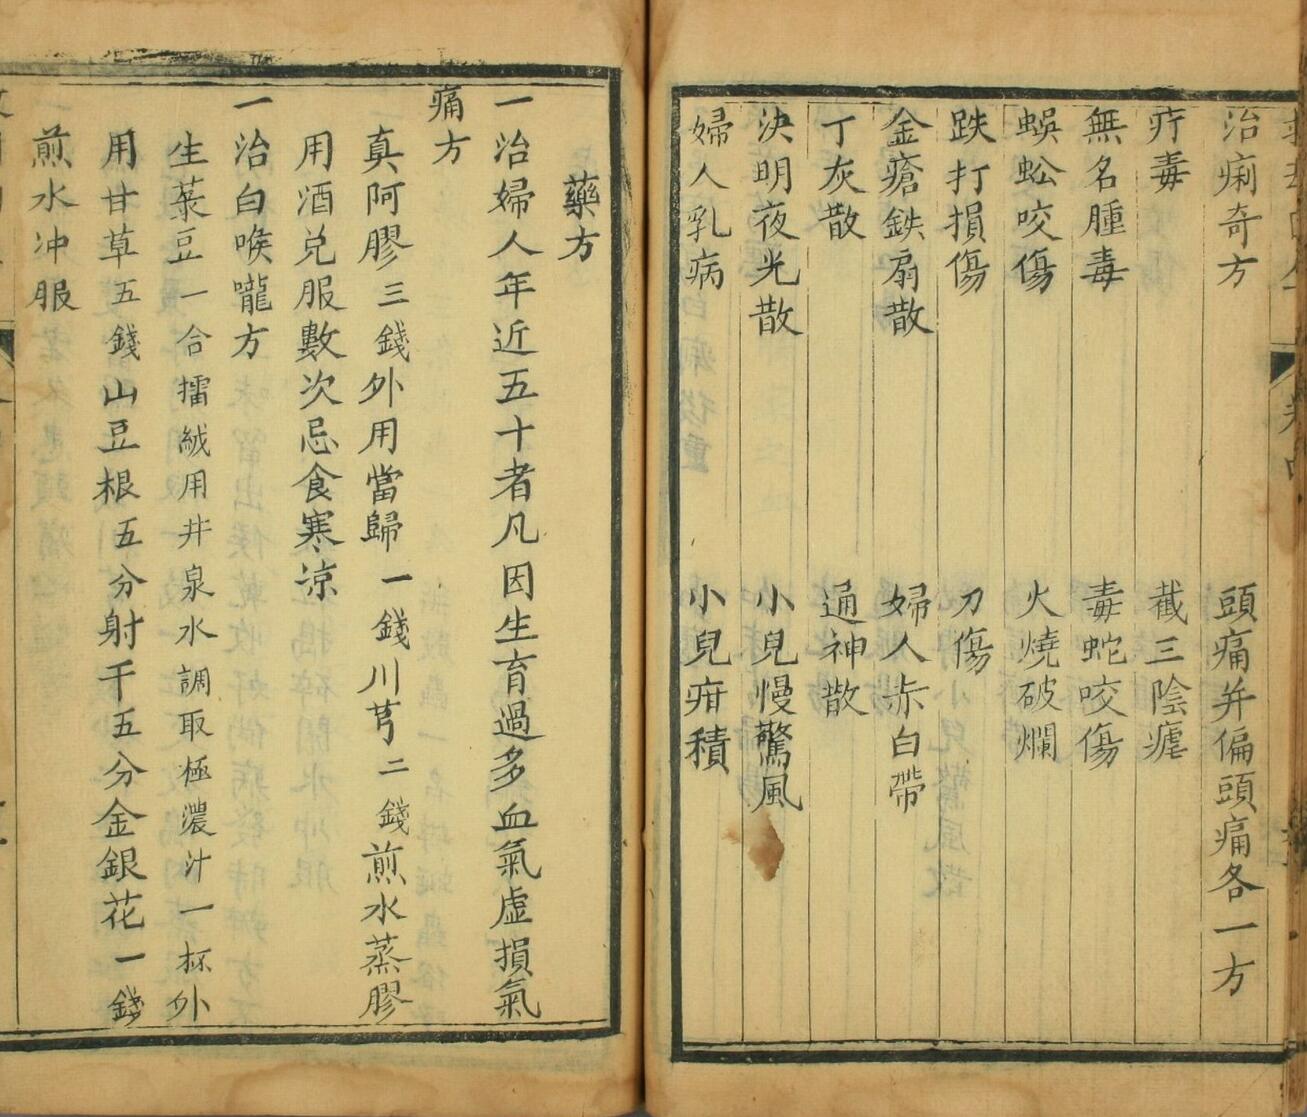 治痢奇方 頭痛并偏頭痛各一方
疔毒 截三陰瘧
無名腫毒 毒蛇咬傷
蜈蚣咬傷 火燒破爛
跌打損傷 刀傷
金瘡鉄扇散 婦人赤白帶
丁灰散 通神散
決明夜光散 小兒慢驚風
婦人乳病 小兒疳積
藥方
一治婦人年近五十者凡因生育過多血氣虛損氣
痛方
真阿膠三錢外用當歸一錢川芎二錢煎水蒸膠
用酒兌服數次忌食寒凉
一治白喉嚨方
生菉豆一合擂絨用井泉水調取極濃汁一杯外
用甘草五錢山豆根五分射干五分金銀花一錢
煎水冲服